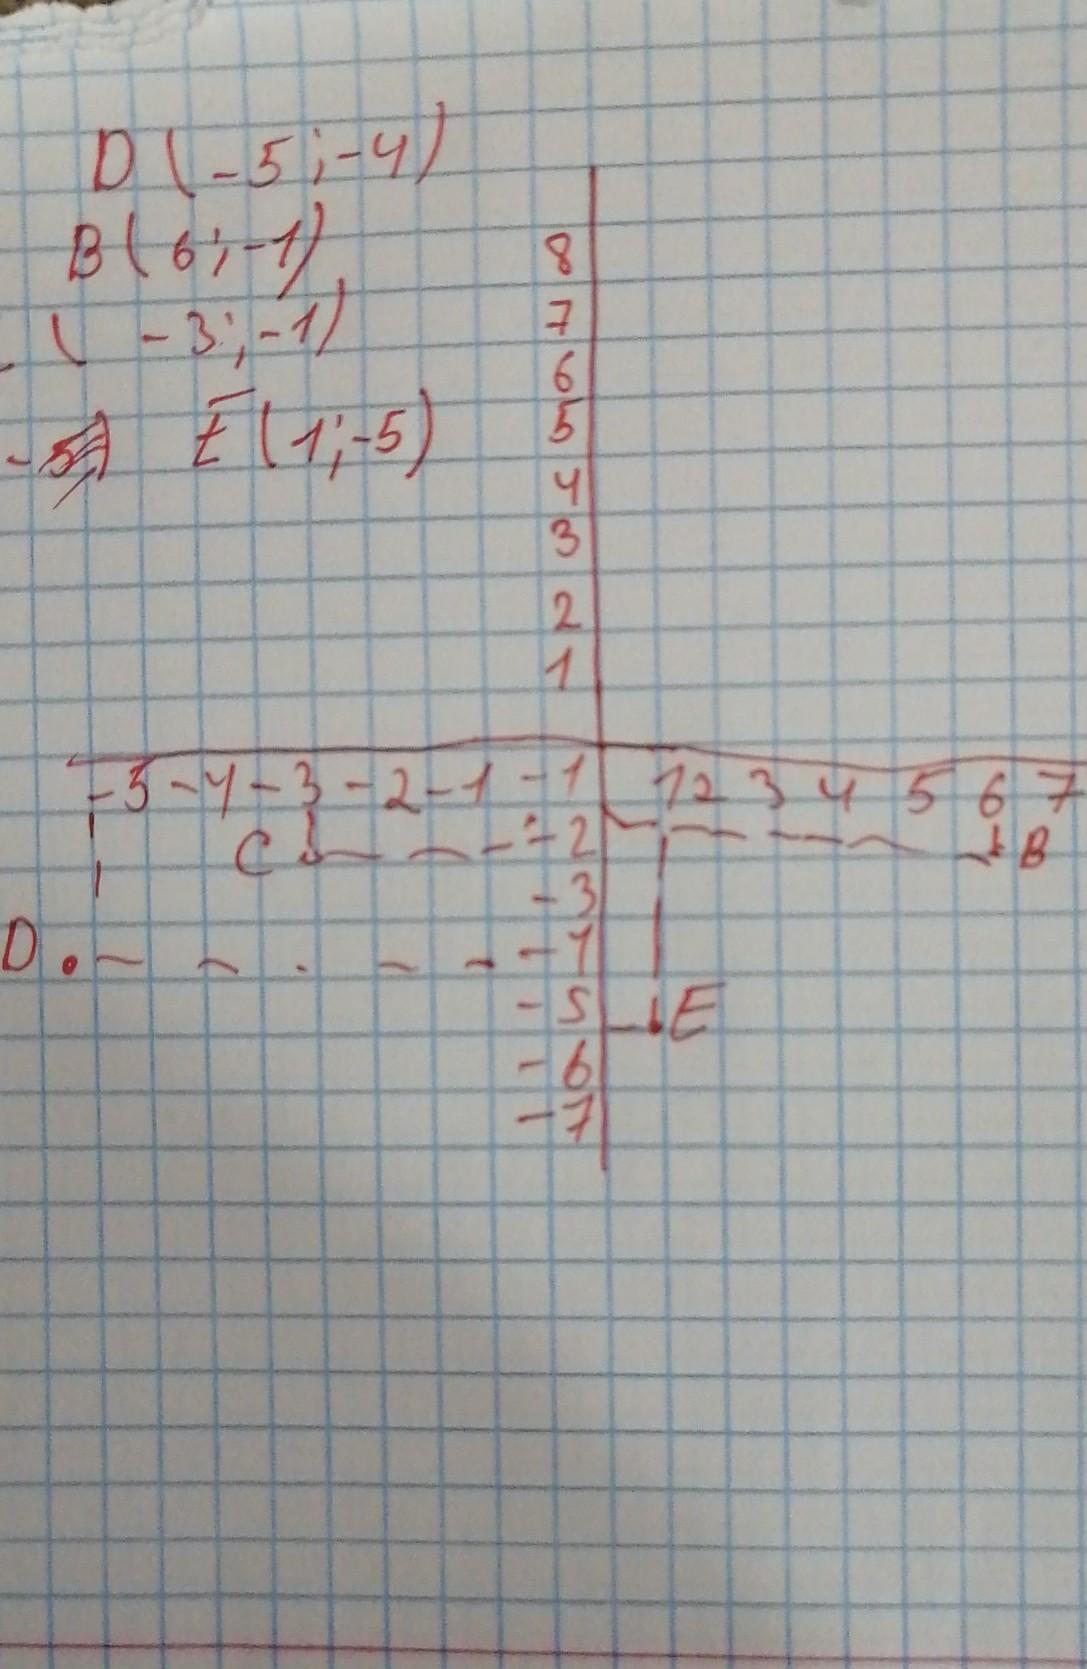 D (-5; -4)
B (6; -1)
( -3; -1)
E (1; -5)
8
7
6
5
4
3
2
1
-5 -4 -3 -2 -1 -1 1 2 3 4 5 6 7
C -2 B
-3
D -4
-5 E
-6
-7